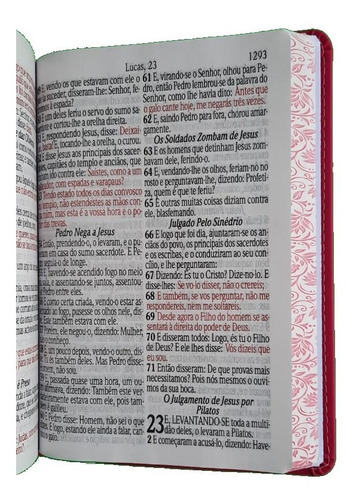 Lucas, 23
1293
E, vendo os que estavam com ele o
suceder, disseram-lhe: Senhor,
espada?
um deles feriu o servo do sumo
e cortou-lhe a orelha direita.
E, respondendo Jesus, disse: Deixai-
E, tocando-lhe a orelha, o curou.
E disse Jesus aos principais dos sacer-
capitães do templo e anciãos, que
Saístes, como a um
com espadas e varapaus?
Tendo estado todos os dias convosco
não estendestes as mãos con-
mas esta é a vossa hora e o po-
trevas.
Pedro Nega a Jesus
Então, prendendo-o, o levaram, e o pu-
em casa do sumo sacerdote. E
seguia-o de longe.
E, havendo-se acendido fogo no meio
e assentando-se juntos, assentou-
entre eles.
E como certa criada, vendo-o estar as-
ao fogo, pusesse os olhos nele, dis-
Este também estava com ele.
negou-o, dizendo: Mulher,
E, um pouco depois, vendo-o outro,
Mas Pedro disse:
não sou.
E, passada quase uma hora, um ou-
dizendo: Também este ver-
estava com ele, pois também
galileu.
E Pedro disse: Homem, não sei o que
E logo, estando ele ainda a
o galo.
61 E, virando-se o Senhor, olhou para Pe-
dro, então Pedro lembrou-se da palavra do
Senhor, como lhe havia dito: Antes que
o galo cante hoje, me negarás três vezes.
62 E, saindo Pedro para fora, chorou amar-
gamente.
Os Soldados Zombam de Jesus
63 E os homens que detinham Jesus zom-
bavam dele, ferindo-o.
64 E, vendando-lhe os olhos, feriam-no no
rosto e perguntavam-lhe, dizendo: Profetiza,
quem é que te feriu?
65 E outras muitas coisas diziam contra
ele, blasfemando.
Julgado Pelo Sinédrio
66 E logo que foi dia, ajuntaram-se os an-
ciãos do povo, os principais dos sacerdotes
e os escribas, e o conduziram ao seu con-
cílio, e lhe perguntaram:
67 Dizendo: És tu o Cristo? Dize-no-lo. E
disse-lhes: Se vo-lo disser, não o crereis;
68 E também, se vos perguntar, não me
respondereis, nem me soltareis.
69 Desde agora o Filho do homem se as-
sentará à direita do poder de Deus.
70 E disseram todos: Logo, és tu o Filho
de Deus? E ele lhes disse: Vós dizeis que
eu sou.
71 Então disseram: De que provas mais
necessitamos? Pois nós mesmos o ouvi-
mos da sua boca.
O Julgamento de Jesus por
Pilatos
23 E, LEVANTANDO-SE toda a multi-
dão deles, o levaram a Pilatos.
2 E começaram a acusá-lo, dizendo: Have-